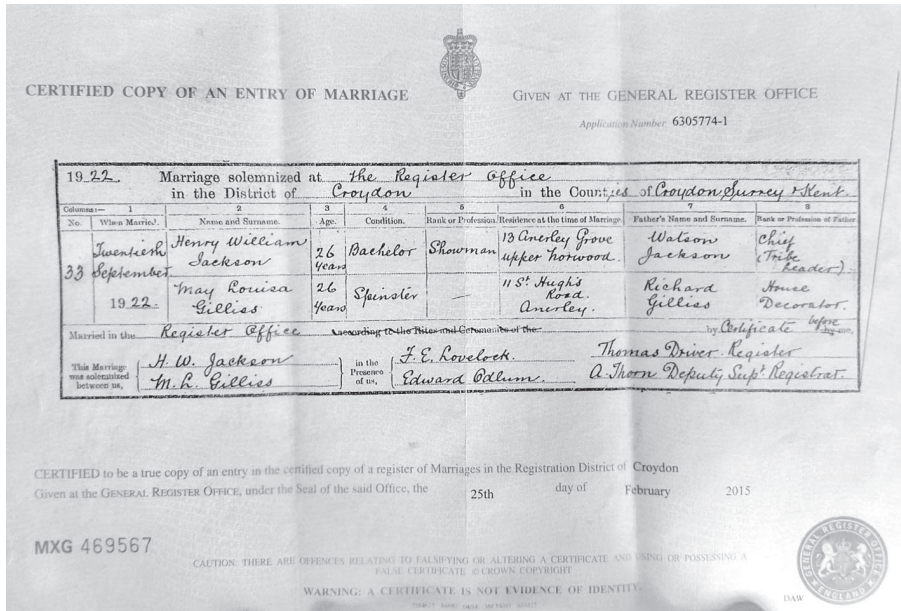 CERTIFIED COPY OF AN ENTRY OF MARRIAGE
GIVEN AT THE GENERAL REGISTER OFFICE
Application Number 6305774-1
1922. Marriage solemnized at the Register Office
in the District of Croydon in the Counties of Croydon Surrey & Kent
Columns:— 1 2 3 4 5 6 7 8
No. When Married. Name and Surname. Age. Condition. Rank or Profession. Residence at the time of Marriage. Father's Name and Surname. Rank or Profession of Father.
33 Twentieth September 1922.
Henry William Jackson 26 years Bachelor Showman 13 Anerley Grove upper Norwood. Watson Jackson Chief (Tribe Leader).
May Louisa Gilliss 26 years Spinster — 11 St Hugh's Road. Anerley. Richard Gilliss House Decorator.
Married in the Register Office according to the Rites and Ceremonies of the by Certificate before me,
This Marriage was solemnized between us, H. W. Jackson M. L. Gilliss
in the Presence of us, F. E. Lovelock. Edward Odlum.
Thomas Driver. Register
A. Thorn Deputy Supt Registrar.
CERTIFIED to be a true copy of an entry in the certified copy of a register of Marriages in the Registration District of Croydon
Given at the GENERAL REGISTER OFFICE, under the Seal of the said Office, the 25th day of February 2015
MXG 469567
CAUTION: THERE ARE OFFENCES RELATING TO FALSIFYING OR ALTERING A CERTIFICATE AND USING OR POSSESSING A
FALSE CERTIFICATE ©CROWN COPYRIGHT
WARNING: A CERTIFICATE IS NOT EVIDENCE OF IDENTITY.
GENERAL REGISTER OFFICE
ENGLAND
DAW